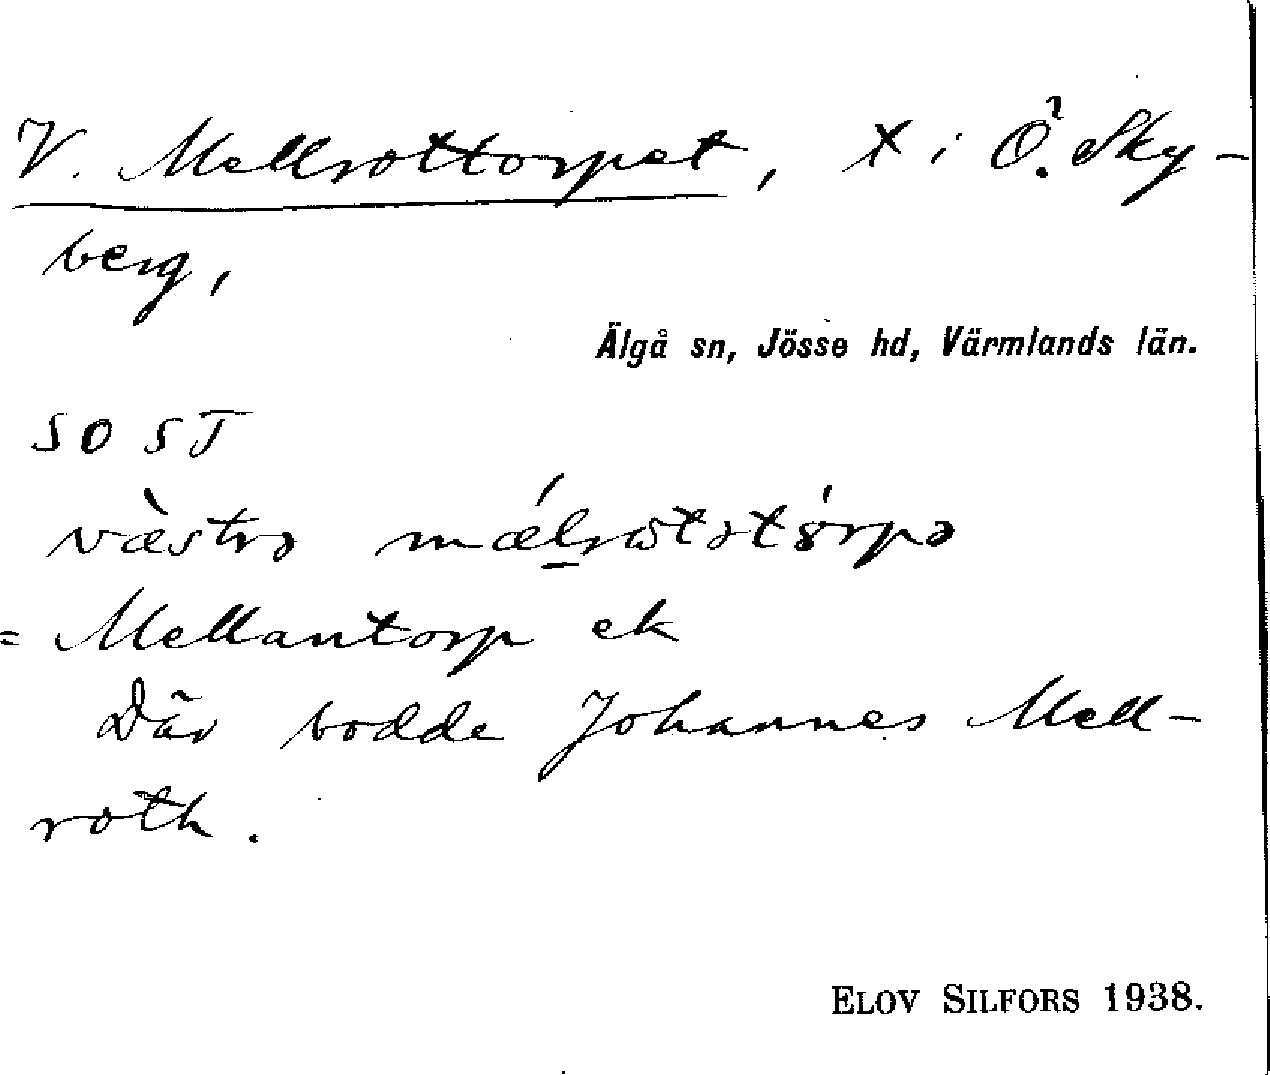 V. Mellrottorpet, x i Ö. Sky-
berg,
Älgå sn, Jösse hd, Värmlands län.
SO ST
væ̀strə
= Mellantorp ek
Där bodde Johannes Mell-
roth.
ELOV SILFORS 1938.